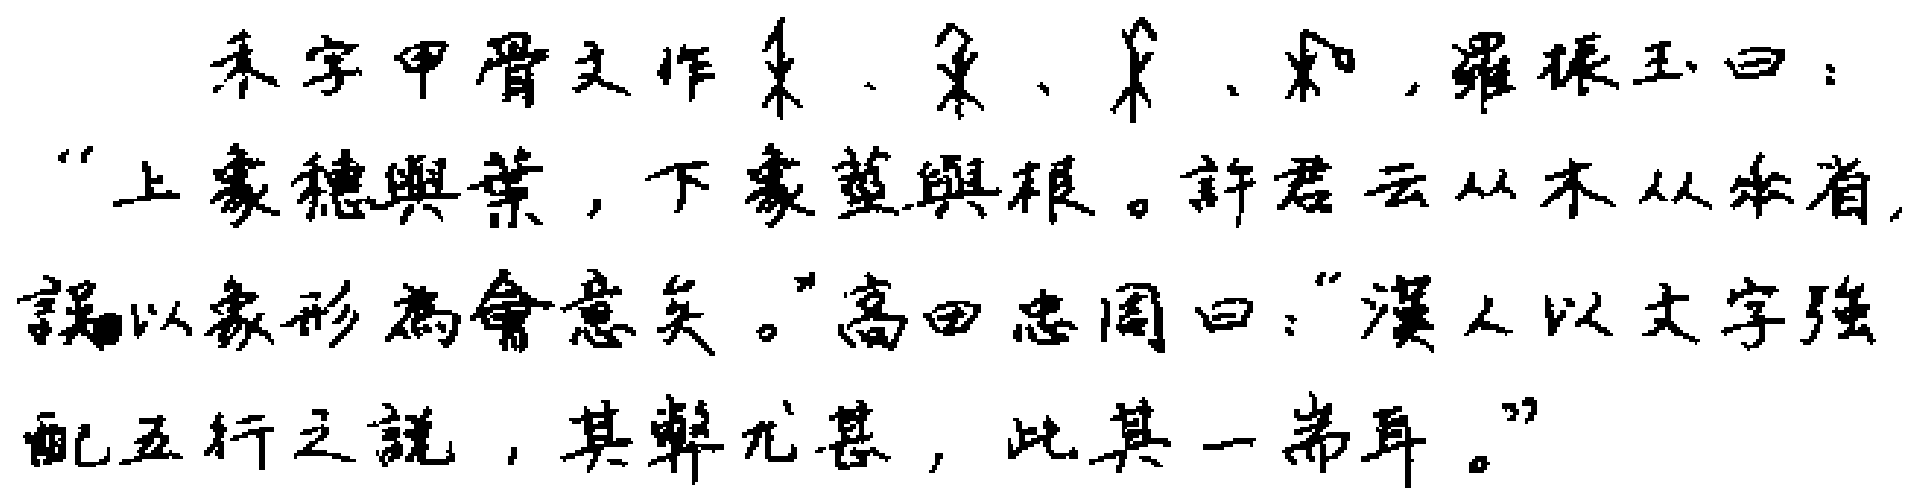 禾字甲骨文作、、、，羅振玉曰：
“上象穗與葉，下象莖與根。許君云从木从𠂹省，
誤以象形為會意矣。”高田忠周曰：“漢人以文字強
配五行之說，其弊尤甚，此其一耑耳。”